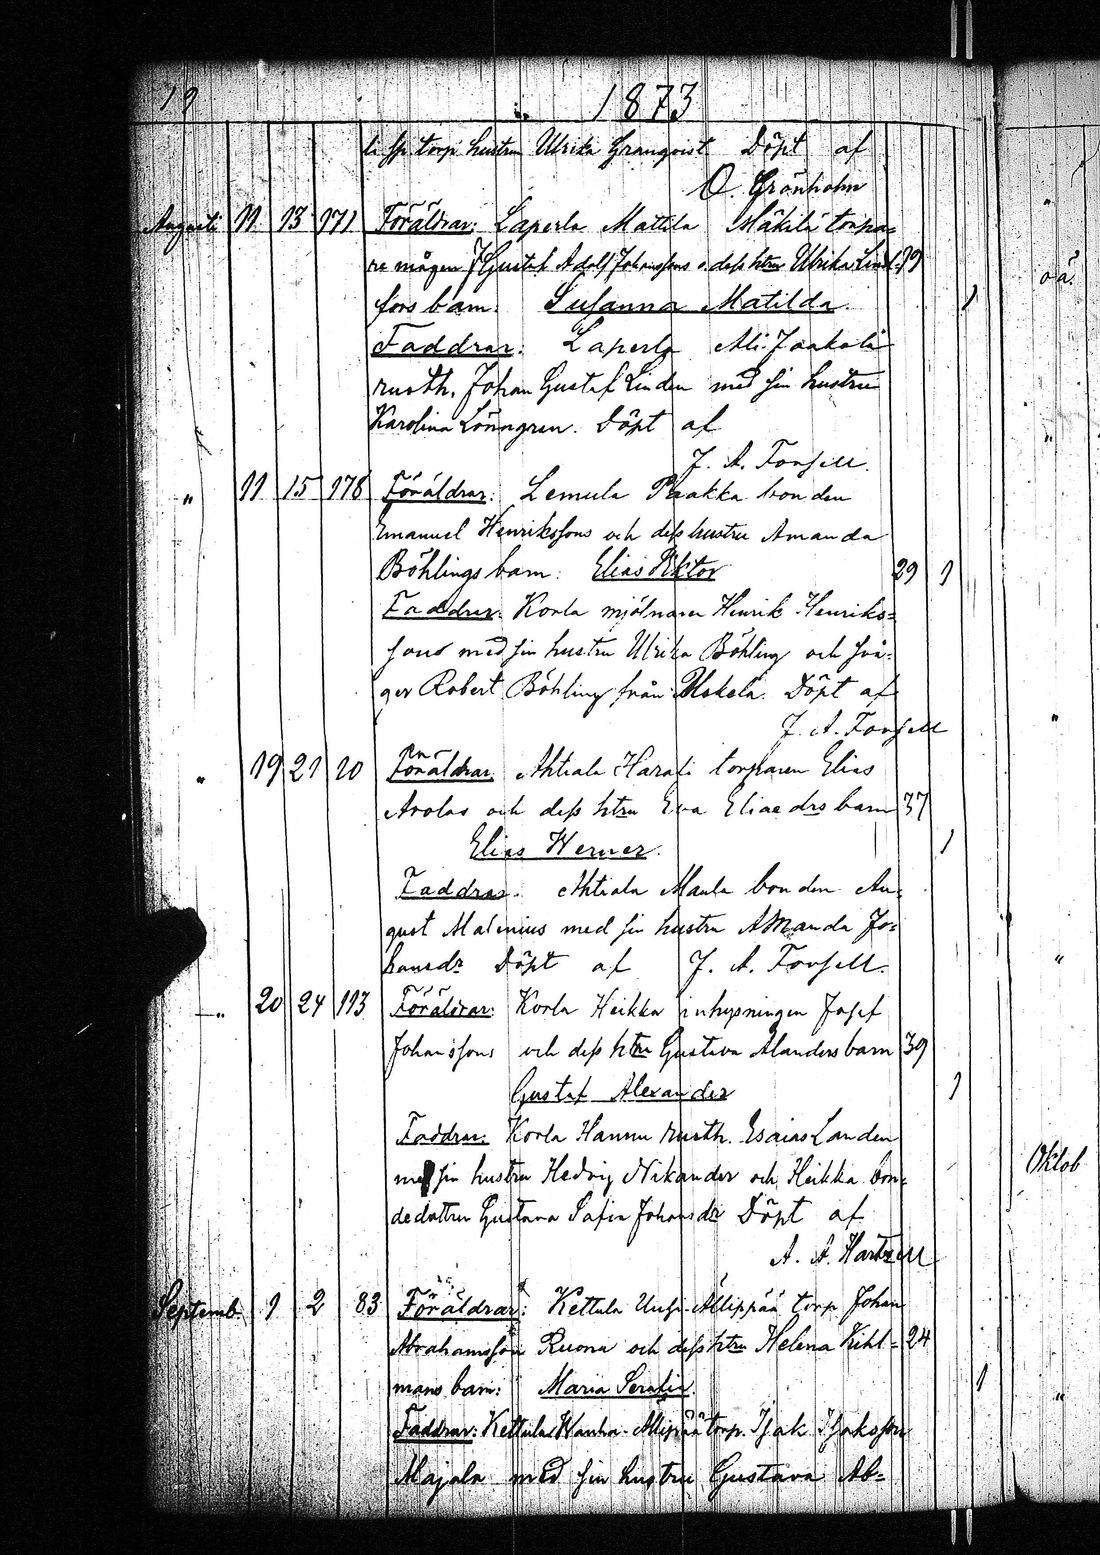 19 1873
torp hustru Ulrika Granqvist Döpt af
O. Grönholm
Augusti 11 13 171 Föräldrar: Laperla Mattila Mäkilä torpa=
re mågen Gustaf Adolf Johanssons o. dess htru Ulrika Lind= 39
fors barn: Susanna Matilda. 1
Faddrar: Laperla Ali-Jaakola
rusth. Johan Gustaf Linden med sin hustru
Karolina Lönngren. Döpt af
J. A. Forsell.
" 11 15 178 Föräldrar: Lemula Paakka bonden
Emanuel Henrikssons och dess hustru Amanda
Böhlings barn: Elias Viktor 29 1
Faddrar: Korla mjölnaren Henrik Henriks=
sons med sin hustru Ulrika Böhling och svå-
ger Robert Böhling från Uskela. Döpt af
J. A. Forsell
" 19 21 20 Föräldrar Ahtiala torparen Elias
Arolas och dess htru Eva Eliaedrs barn 37
Elias Werner. 1
Faddrar: Ahtiala bonden Au=
gust Malenius med sin hustru Amanda Jo=
hansdr Döpt af J. A. Forsell.
" 20 24 113 Föräldrar: Korla Heikka inhysningen Josef
Johanssons och dess htru Gustava Alanders barn 39
Gustaf Alexander 1
Faddrar: Korla Hannu rusth. Esaias Landen
med sin hustru Hedvig Nikander och Heikka bon=
dedottren Gustava Safia Johansdr Döpt af
A. A. Hartzell
Septemb. 1 2 83 Föräldrar: Kettula Uusi-Allippää torp Johan
Abrahamsson Ruona och dess htru Helena Kihl= 24
mans barn: Maria Serafia. 1
Faddrar: Kettula Wanha-Allipää torp. Isak Isaksson
Majala med sin hustru Gustava Ab=
oä.
Oktob